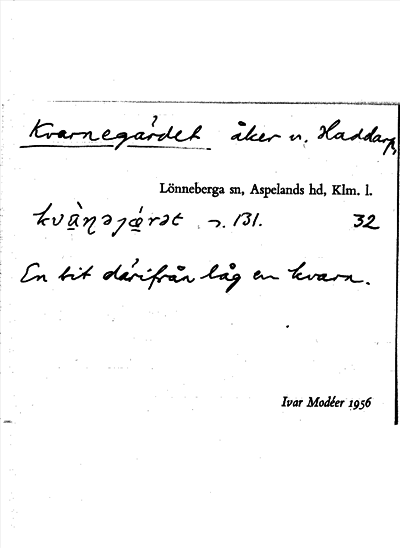 Kvarnegärdet åker n. Haddarp
Lönneberga sn, Aspelands hd, Klm. l.
131. 32
En bit därifrån låg en kvarn.
Ivar Modéer 1956